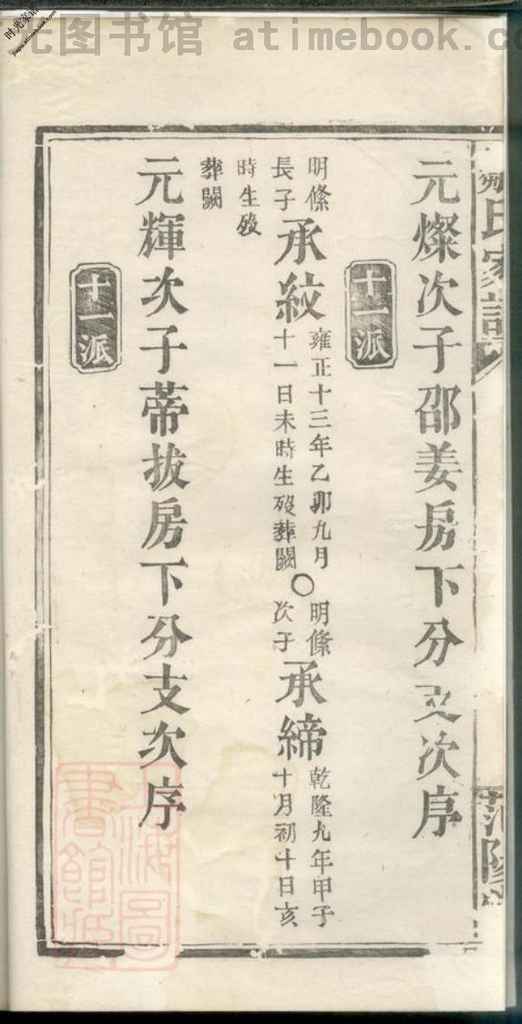 光图书馆 atimebook.com
氏家譜
元燦次子邵姜房下分支次序
十一派
明絛長子 承紋 雍正十三年乙卯九月十一日未時生歿葬闕〇明絛次子 承締 乾隆九年甲子十月初十日亥
時生歿
葬闕
元輝次子蒂拔房下分支次序
十一派
上海圖書館藏